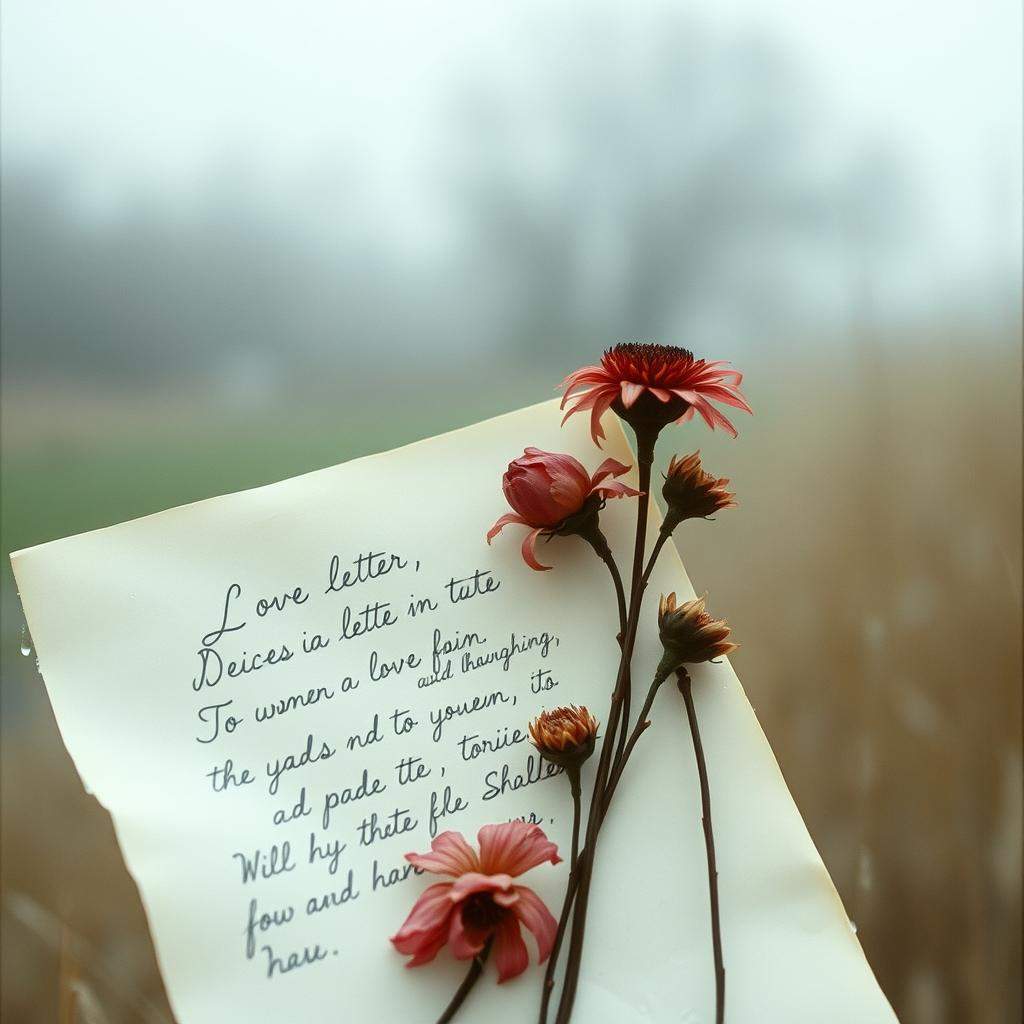 Love letter,
Deices ia lette in tute
To women a love foin.
and
the yads nd to youern, ito
ad pade tte, toriie.
Will hy thete fhe Shalle
fow and have
hau.